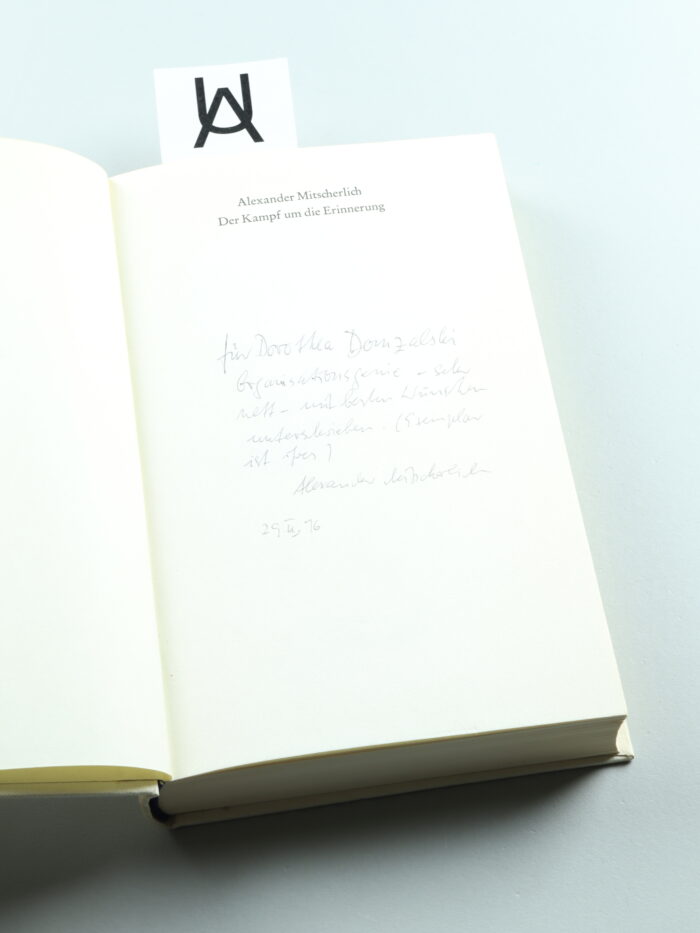 UA
Alexander Mitscherlich
Der Kampf um die Erinnerung
für Dorothea Domzalski
Organisationsgenie – sehr
nett – mit besten Wünschen
unterschrieben. (Exemplar
ist
Alexander Mitscherlich
76